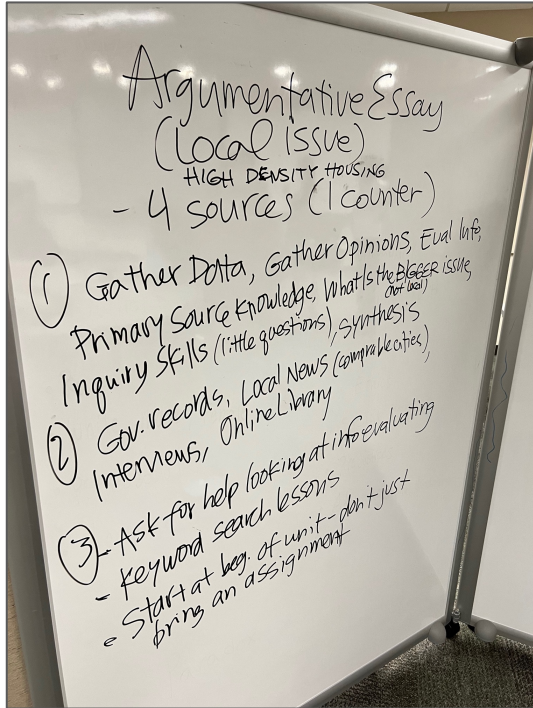 Argumentative Essay
(Local issue)
HIGH DENSITY HOUSING
- 4 sources (1 counter)
① Gather Data, Gather Opinions, Eval Info,
Primary Source Knowledge, What Is the BIGGER issue,
(not local)
Inquiry Skills (little questions), synthesis
② Gov. records, Local News (comprable cities),
Interviews, Online Library
③ - Ask for help looking at info evaluating
- Keyword search lessons
- Start at beg. of unit - don't just
bring an assignment